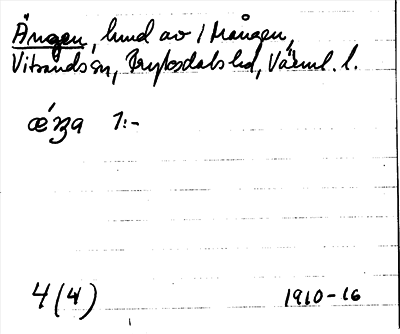 Ängen, lund av / Mången,
Vitsands sn, Fryksdals hd, Värml. l.
1:-
4 (4) 1910-16